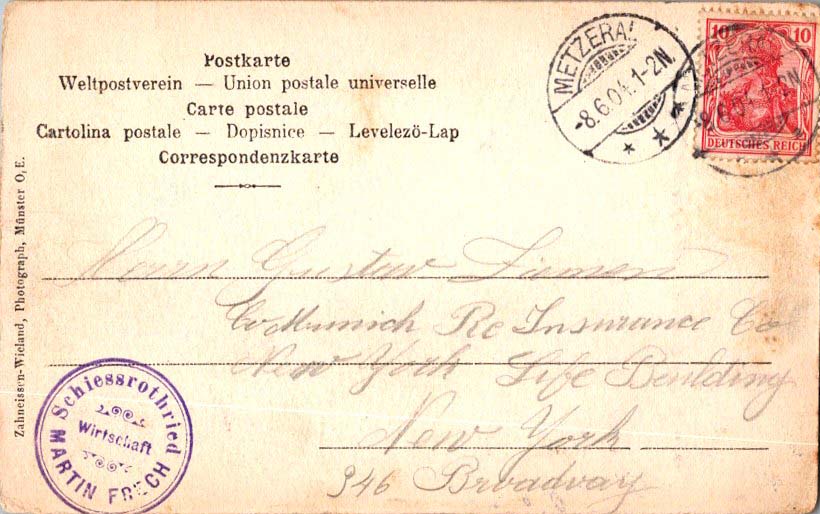 Postkarte
Weltpostverein — Union postale universelle
Carte postale
Cartolina postale — Dopisnice — Levelezö-Lap
Correspondenzkarte
METZERAL
-8.6.04.1-2N.
10 10
DEUTSCHES REICH
Zahneissen-Wieland, Photograph, Münster O,E.
Herrn Gustav
C/o Munich Re Insurance Co
New York Life Beulding
New York
346 Broadway
Schiessrothried
Wirtschaft
MARTIN FRECH